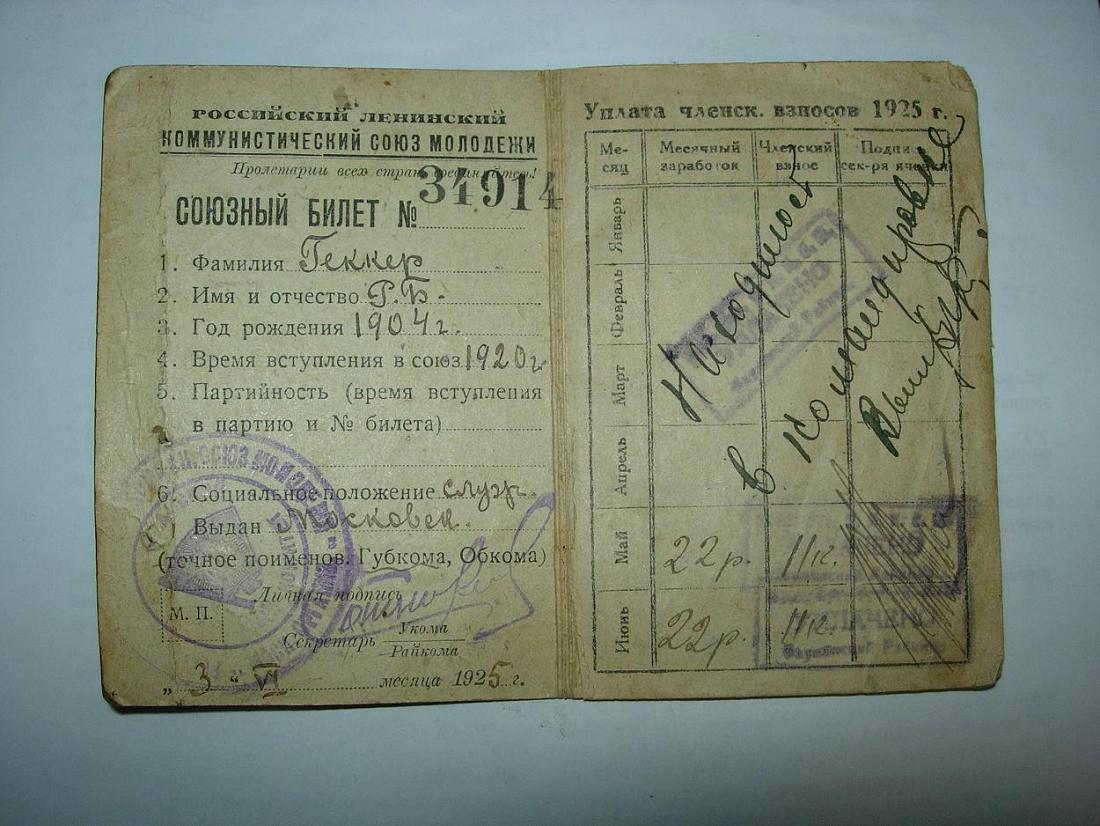 РОССИЙСКИЙ ЛЕНИНСКИЙ
КОММУНИСТИЧЕСКИЙ СОЮЗ МОЛОДЕЖИ
Пролетарии всех стран, соединяйтесь!
СОЮЗНЫЙ БИЛЕТ № 34914
1. Фамилия Геккер
2. Имя и отчество Р.Б.
3. Год рождения 1904 г.
4. Время вступления в союз 1920 г.
5. Партийность (время вступления
в партию и № билета)
6. Социальное положение служ.
Выдан Московск.
(точное поименов. Губкома, Обкома)
М. П.
Личная подпись
Секретарь Укома
Райкома
„3“ VI месяца 1925 г.
Уплата членск. взносов 1925 г.
Ме-сяц Месячный заработок Членский взнос Подпись сек-ря ячейки
Январь
Февраль
Март
Апрель
Май 22 р. 11 к.
Июнь 22 р. 11 к.
Находилось
в командировке
УПЛАЧЕНО